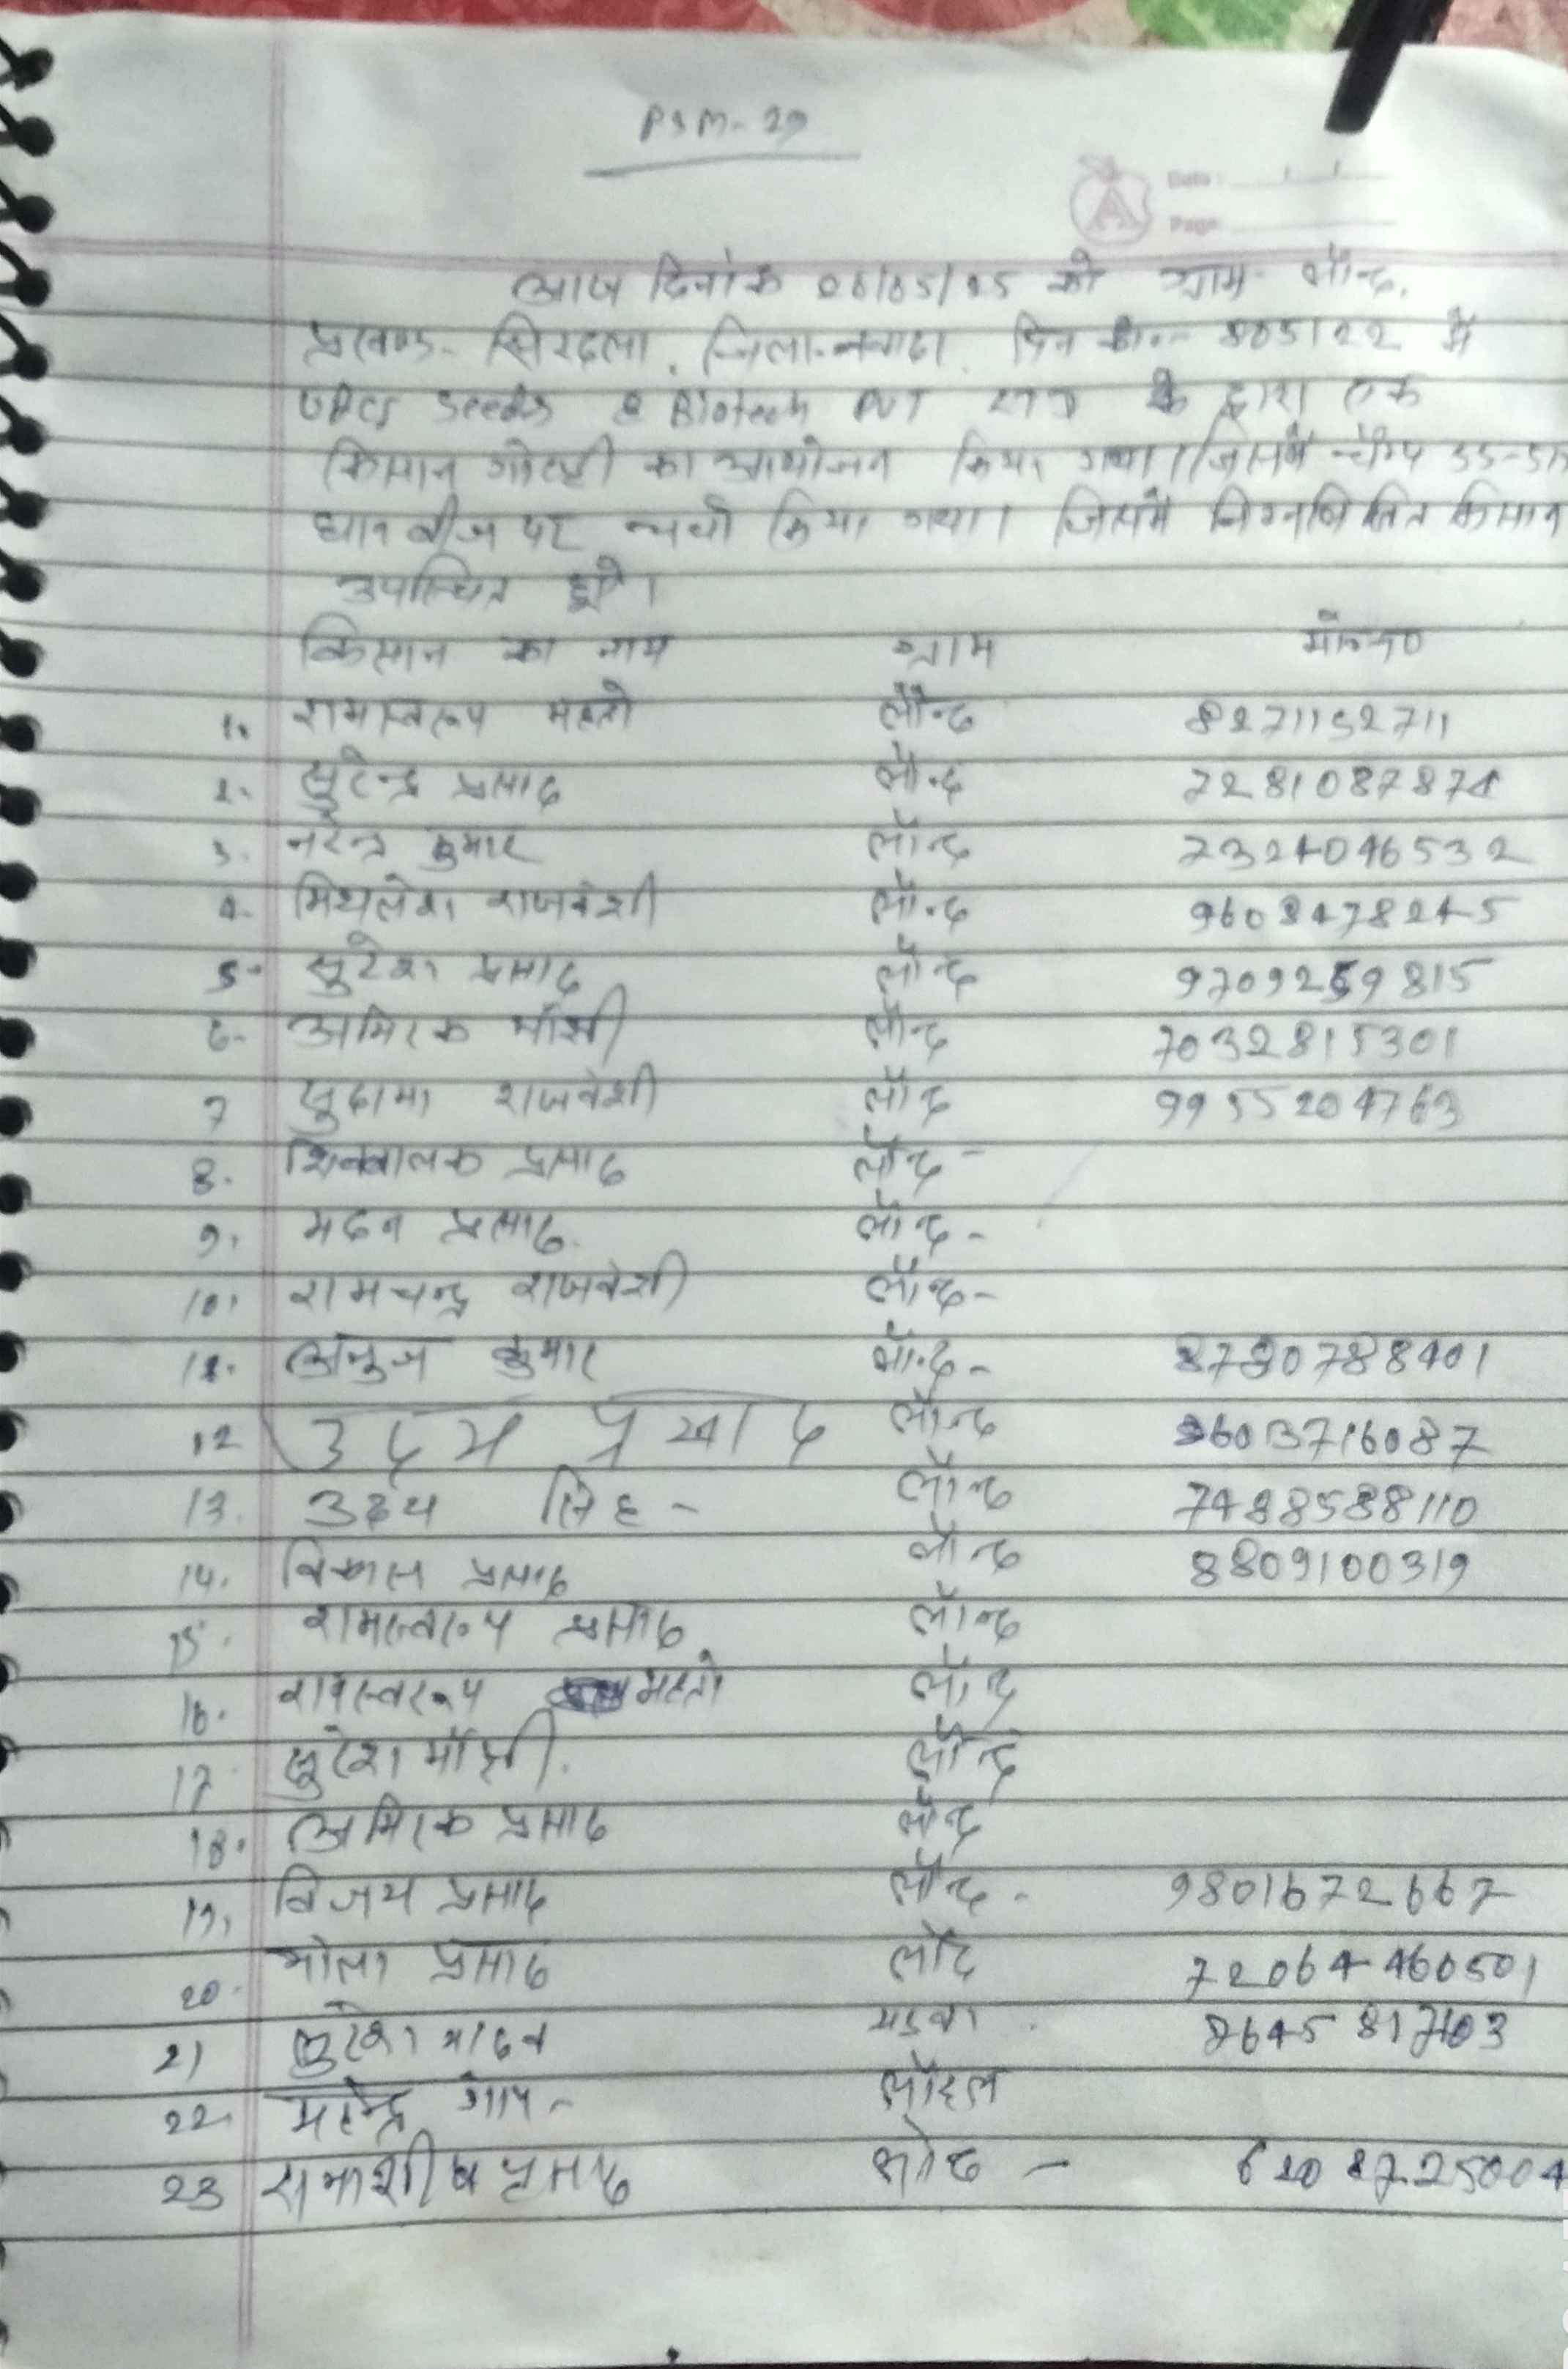 PSM-29
Date:
Page:
आज दिनांक 06/05/25 को ग्राम- लौन्द,
प्रखण्ड- सिरदला, जिला-नवादा, पिन को०- 805122 में
Seeds & Biotech PVT के द्वारा एक
किसान गोष्ठी का आयोजन किया गया। जिसमें
धान बीज पर चर्चा किया गया। जिसमें निम्नलिखित किसान
उपस्थित हुये।
किसान का नाम ग्राम मो०न०
1. रामास्वरूप महतो लौन्द 8271152711
2. सुरेन्द्र प्रसाद लौन्द 7281087874
3. नरेन्द्र कुमार लौन्द 7324046532
4. मिथलेश राजवंशी लौन्द 9608478245
5. सुरेश प्रसाद लौन्द 9709259815
6. अमिरक माँझी लौन्द 7032815301
7 सुदामा राजवंशी लौन्द 9955204763
8. शिवबालक प्रसाद लौन्द -
9. मदन प्रसाद. लौन्द -
10. रामचन्द्र राजवंशी लौन्द -
11. अनुज कुमार लौन्द -
12 उदय प्रसाद लौन्द
13. उदय सिंह - लौन्द 7488588110
14. विकास प्रसाद लौन्द 8809100319
15. रामस्वरूप प्रसाद लौन्द
16. रामस्वरूप महतो लौन्द
17 सुरेश माँझी. लौन्द
18. अमिरक प्रसाद लौन्द
19. विजय प्रसाद लौन्द - 9801672667
20- भोला प्रसाद लौंद 72064460501
21 सुरेश यादव
22 महेन्द्र
23 प्रसाद लोंद -